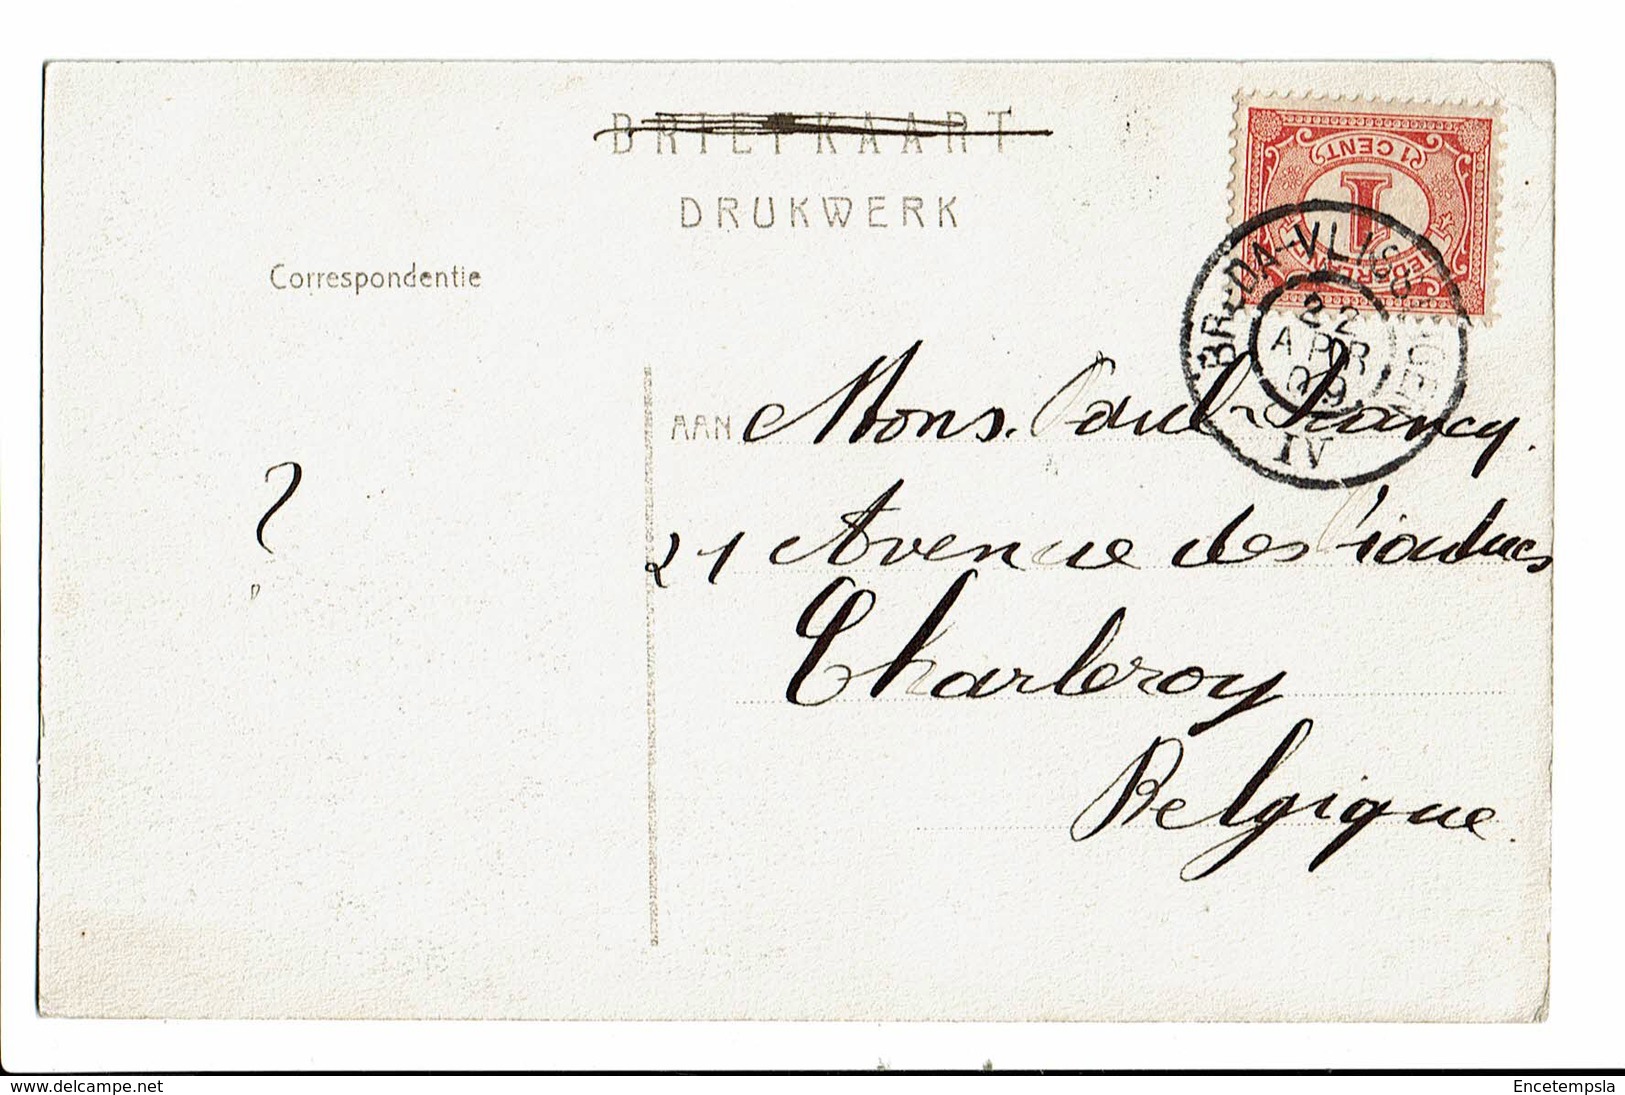 BRIEFKAART
DRUKWERK
1 CENT
1
NEDERLAND
BREDA-VLISSINGEN
22
APR
09
IV
Correspondentie
AAN Mons. Paul Francy.
?
21 Avenue des Viaducs
Charleroy
Belgique.
www.delcampe.net
Encetempsla